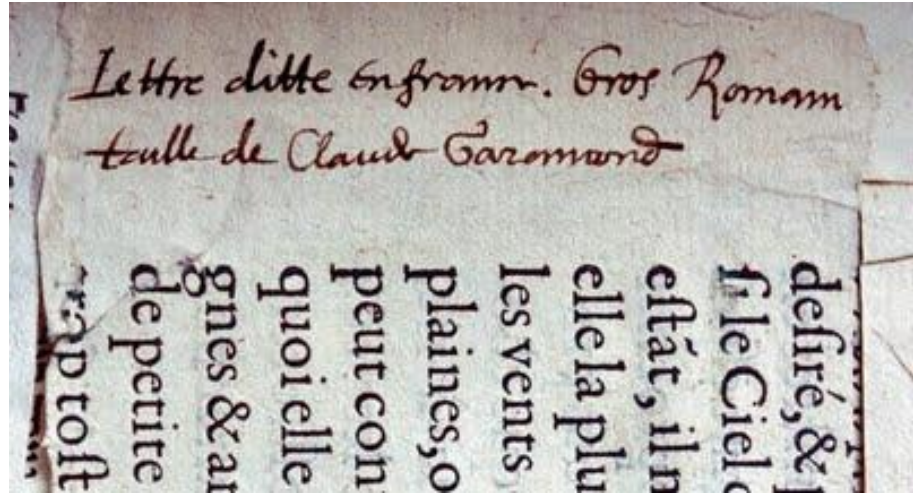 Lettre ditte en france. Gros Romain
taille de Claude Garamond
desiré, &
ſi le Ciel
eſtãt, il
elle la plu
les vents
plaines, o
peut con
quoi elle
gnes & ar
de petite
toſt